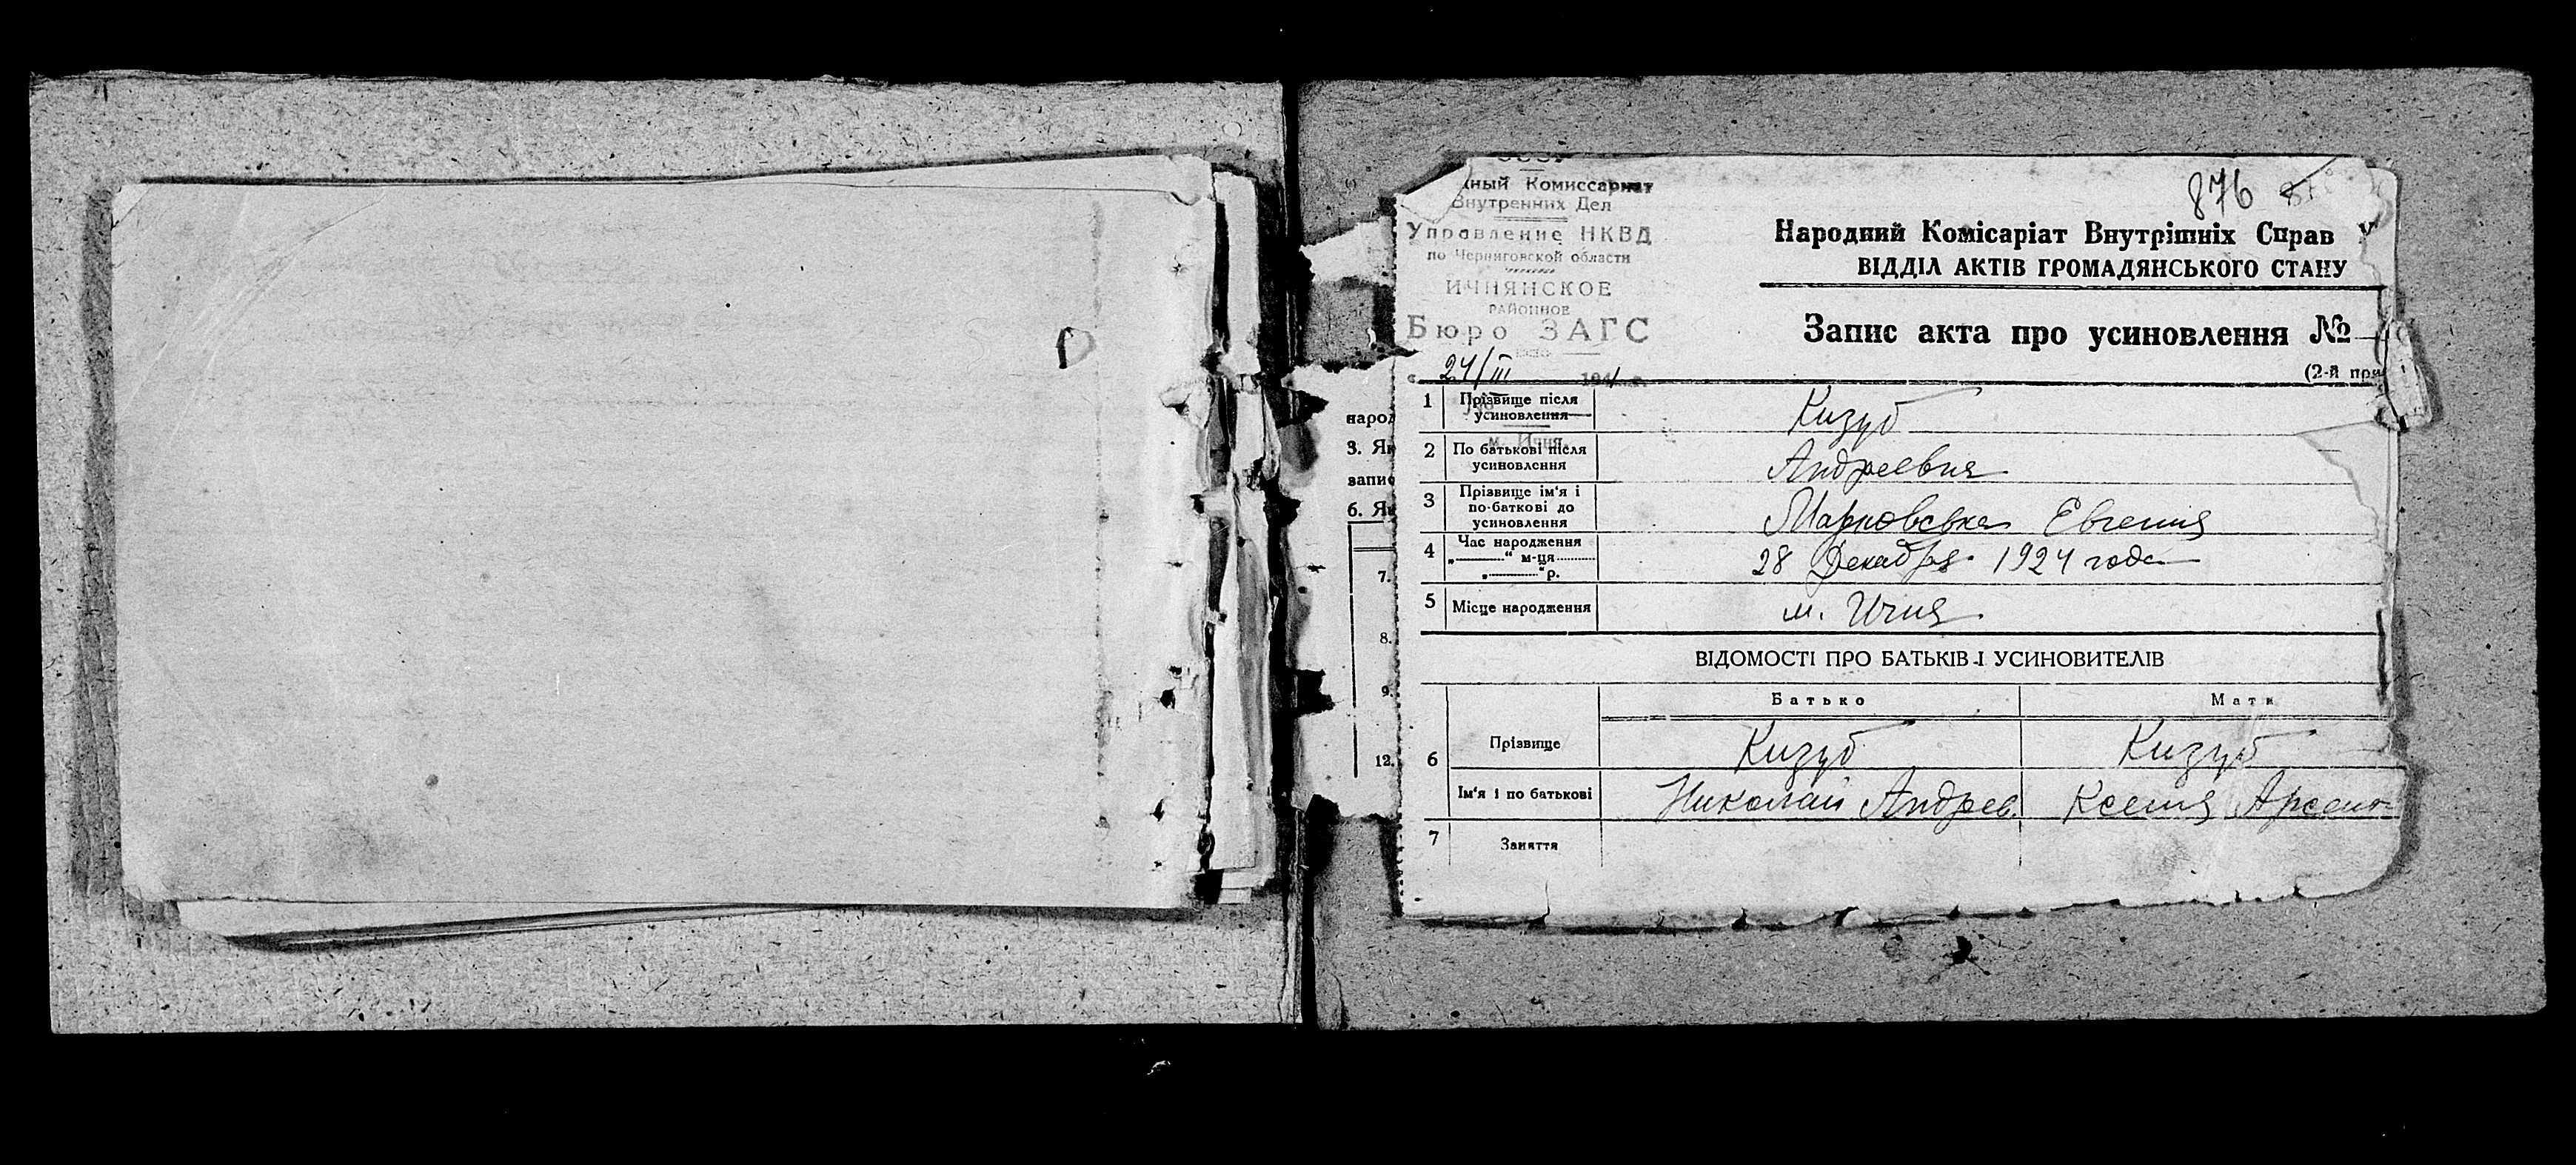 876
ный Комиссариат
Внутренних Дел
Управление НКВД
по Черниговской области
ИЧНЯНСКОЕ
РАЙОННОЕ
Бюро ЗАГС
24/III 194 г.
м. Ичня
Народний Комісаріат Внутрішніх Справ У
ВІДДІЛ АКТІВ ГРОМАДЯНСЬКОГО СТАНУ
Запис акта про усиновлення №
(2-й при
народ
3. Як
запис
6. Як
7.
8.
9.
12.
1 Прізвище після усиновлення Кизуб
2 По батькові після усиновлення Андреевня
3 Прізвище ім'я і по-баткові до усиновлення Марковська Евгения
4 Час народження „ “ м-ця „ “ р. 28 Декабря 1924 года
5 Місце народження м. Ичня
ВІДОМОСТІ ПРО БАТЬКІВ І УСИНОВИТЕЛІВ
Батько Мати
6 Прізвище Кизуб Кизуб
Ім'я і по батькові Николай Андреев. Ксения Арсен
7 Заняття